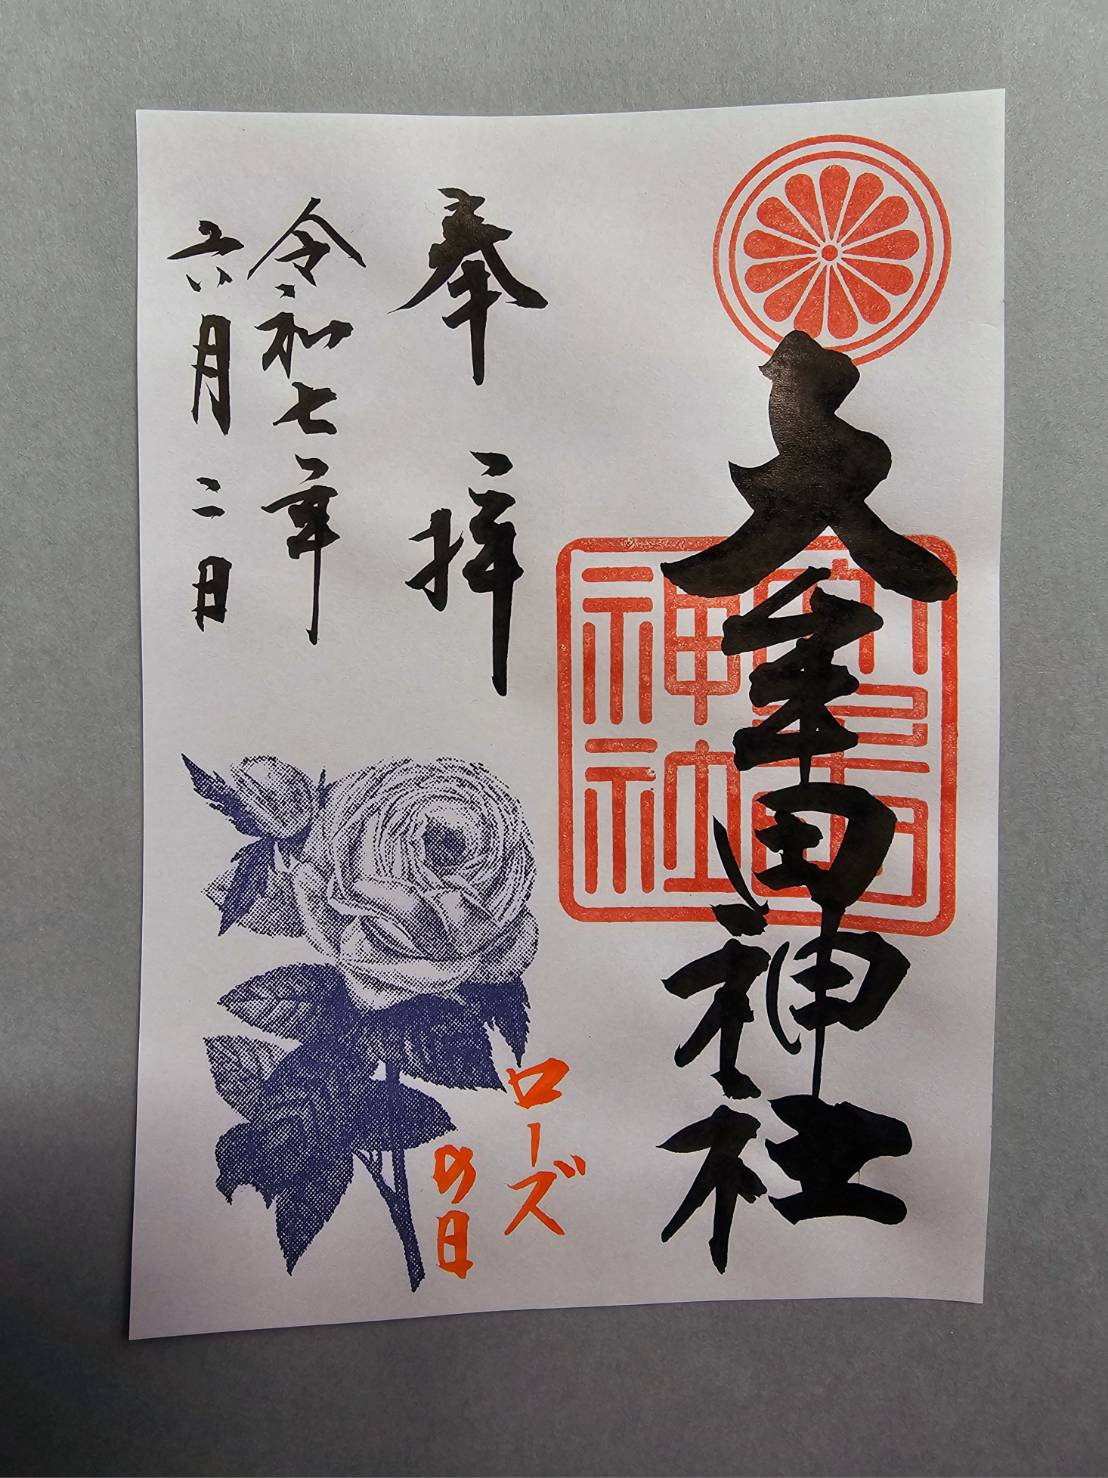 大牟田神社
神社
奉拝
令和七年
六月二日
ローズ
の日